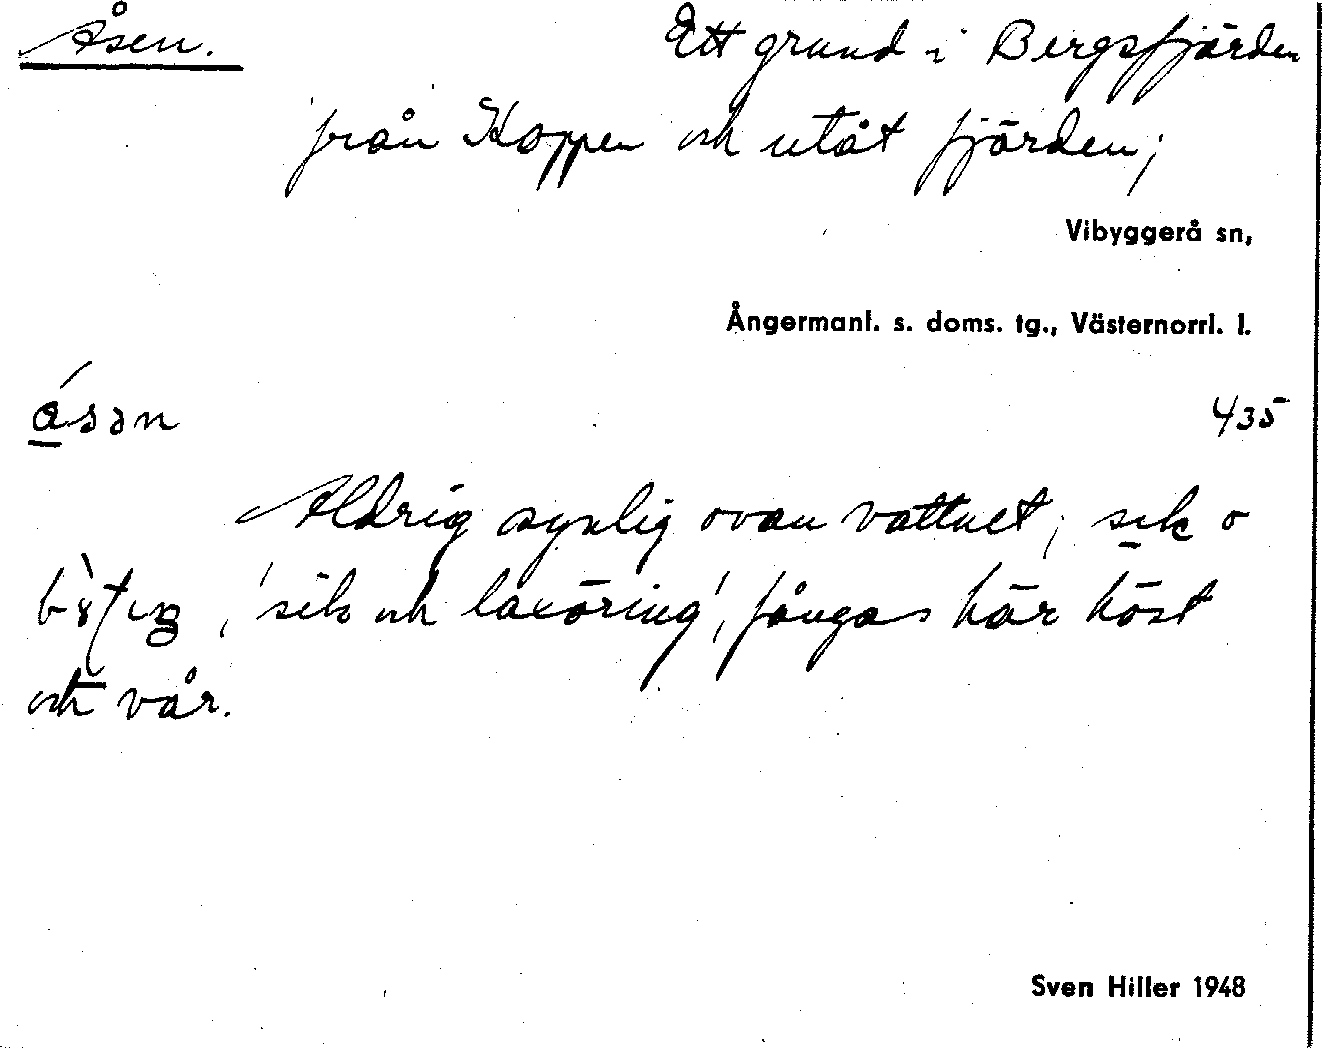 Åsen. Ett grund i Bergsfjärden
från Koppen och utåt fjärden;
Vibyggerå sn,
Ångermanl. s. doms. tg., Västernorrl. l.
ásən 435
Aldrig synlig ovan vattnet; sik o
'sik och laxöring', fångas här höst
och vår.
Sven Hiller 1948